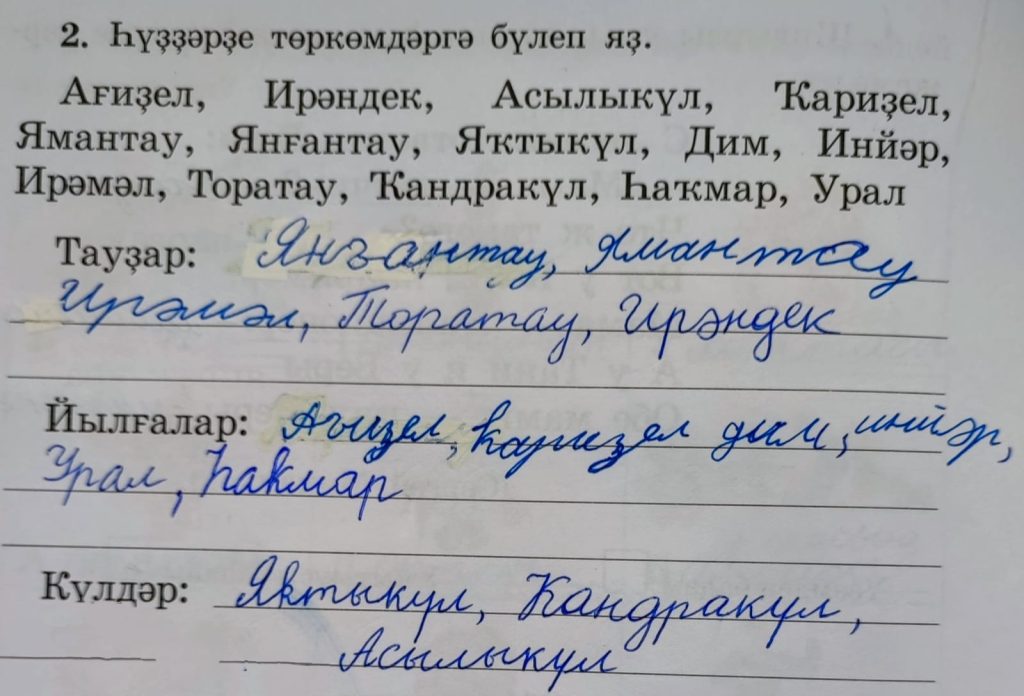 2. Һүҙҙәрҙе төркөмдәргә бүлеп яҙ.
Ағиҙел, Ирәндек, Асылыкүл, Ҡариҙел,
Ямантау, Янғантау, Яҡтыкүл, Дим, Инйәр,
Ирәмәл, Торатау, Ҡандракүл, Һаҡмар, Урал
Тауҙар: Янғантау, Ямантау
Ирәмәл, Торатау, Ирәндек
Йылғалар: Ағиҙел, ҡариҙел дим, инйәр,
Урал, Һаҡмар
Күлдәр: Яктыкул, Ҡандракул,
Асылыкүл